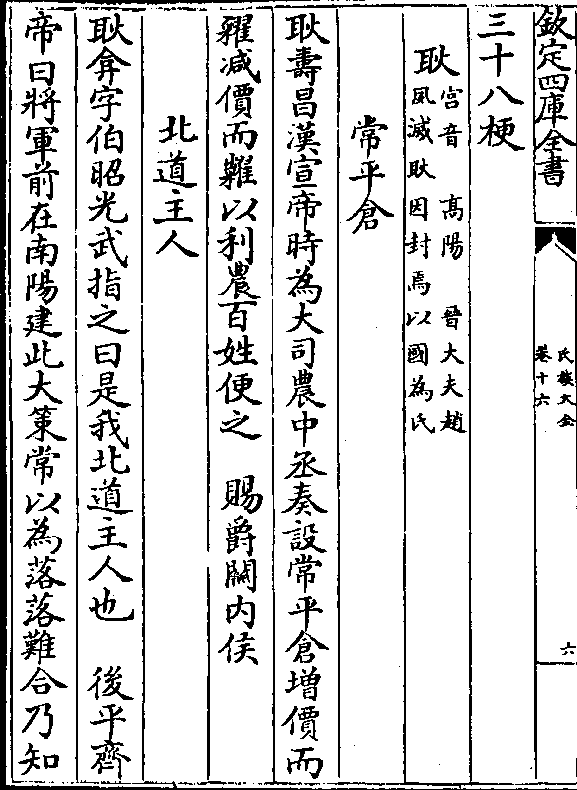 欽定四庫全書
氏族大全
卷十六
六
三十八梗
耿
宫音 高陽 晉大夫趙
夙滅耿因封焉以國為氏
常平倉
耿壽昌漢宣帝時為大司農中丞奏設常平倉增價而
糴減價而糶以利農百姓便之 賜爵關内侯
北道主人
耿弇字伯昭光武指之曰是我北道主人也 後平齊
帝曰將軍前在南陽建此大策常以為落落難合乃知